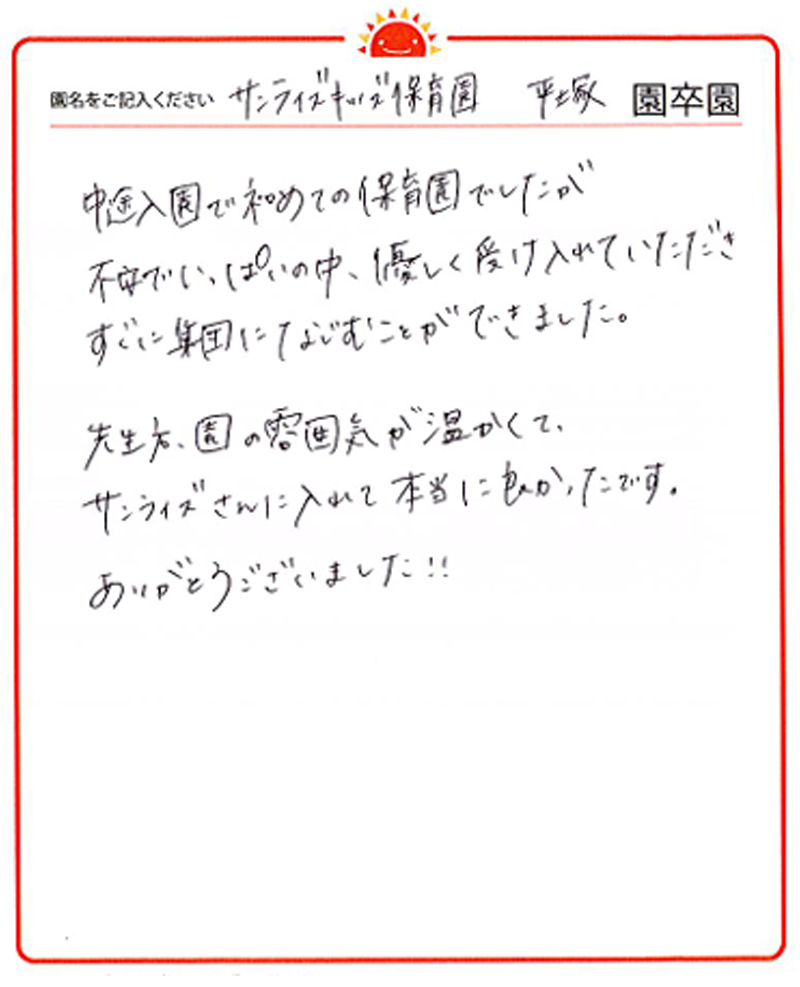 園名をご記入ください サンライズキッズ保育園 平塚 園卒園
中途入園で初めての保育園でしたが
不安でいっぱいの中、優しく受け入れていただき
すぐに集団になじむことができました。
先生方、園の雰囲気が温かくて、
サンライズさんに入れて本当に良かったです。
ありがとうございました!!